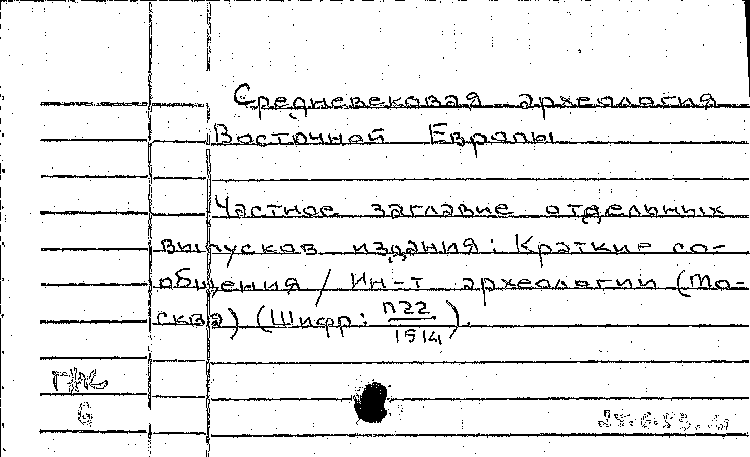 Средневековая археология
Восточной Европы
Частное заглавие отдельных
выпусков издания: Краткие со-
общения / Ин-т археологии (Мо-
сква) (Шифр: П22
1514).
6